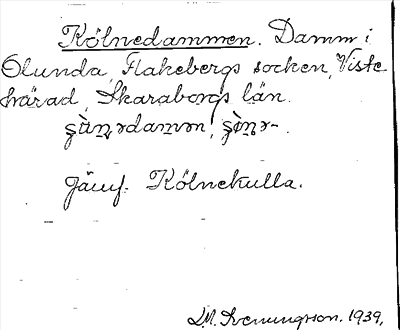 Kölnedammen. Damm i
Olunda, Flakebergs socken, Viste
härad, Skaraborgs län.
Jämf. Kölnekulla.
D.M. Svenungsson. 1939.